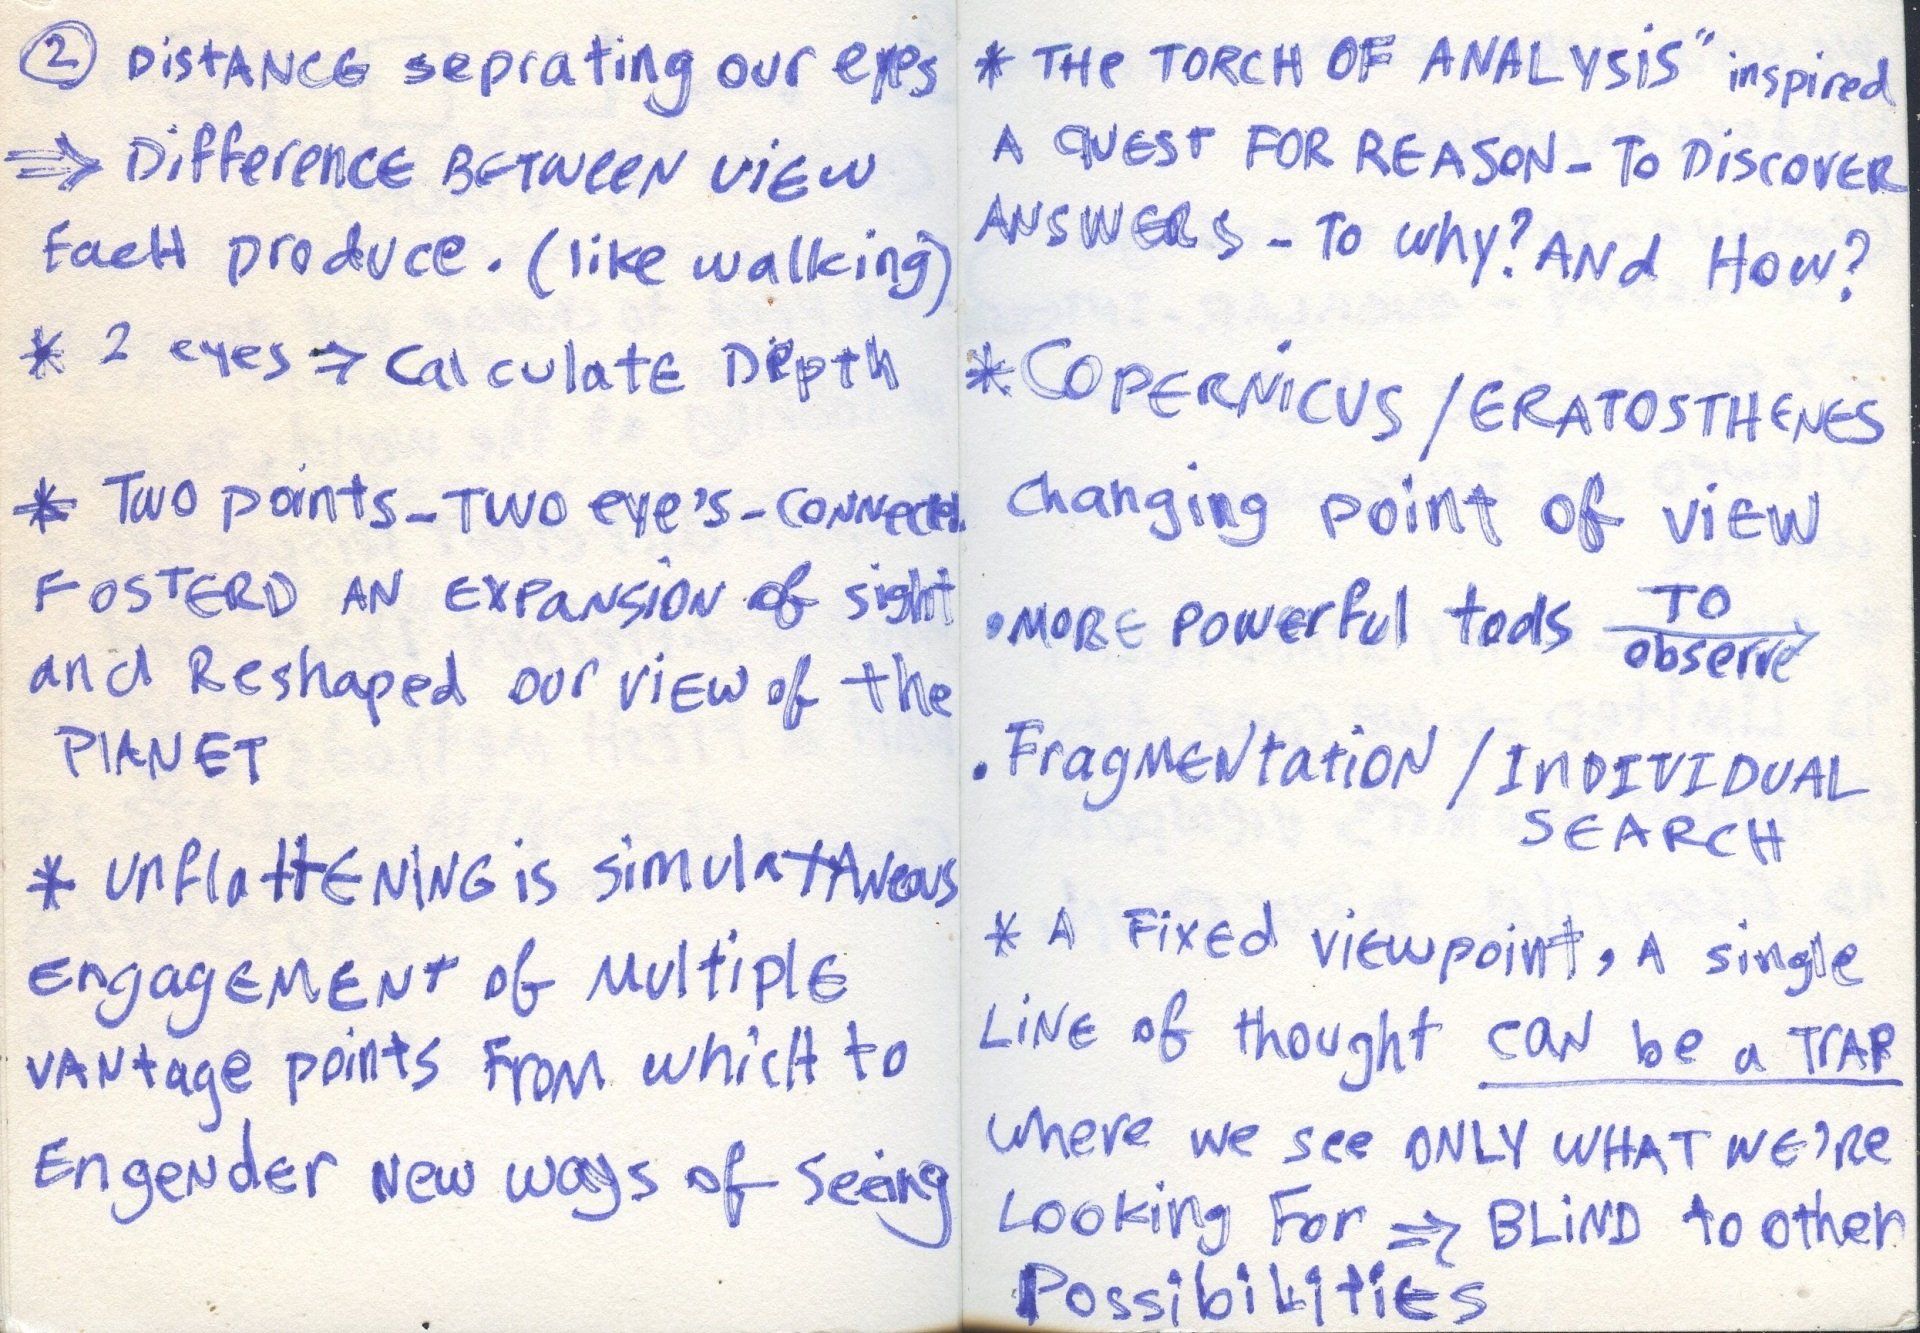 ② DistANCE seprating our eyes
⇒ Difference BETWEEN VIEW
EacH produce. (like walking)
* 2 eyes → CalculatE Depth
* Two points - TWO eye's - CONNected.
FOSTERD AN EXPANSION of sight
and Reshaped our VIEW of the
PlANET
* UnflattENING is simulatANeous
EngagEMENT of Multiple
VANtage points From whicH to
Engender New ways of seeing
* THe TORCH OF ANALYSIS" inspired
A QUEST FOR REASON - To DISCOVER
ANSWERS - To why? ANd How?
* COPERNICUS / ERATOSTHENES
changing point of VIEW
• MORE Powerful tools TO
observe
• FragMENtation / InDIVIDUAL
SEARCH
* A FIXEd Viewpoint, A single
LINE of thought CAN be a TrAP
where we see ONLY WHAT WE're
Looking For ⇒ BLIND to other
Possibilities